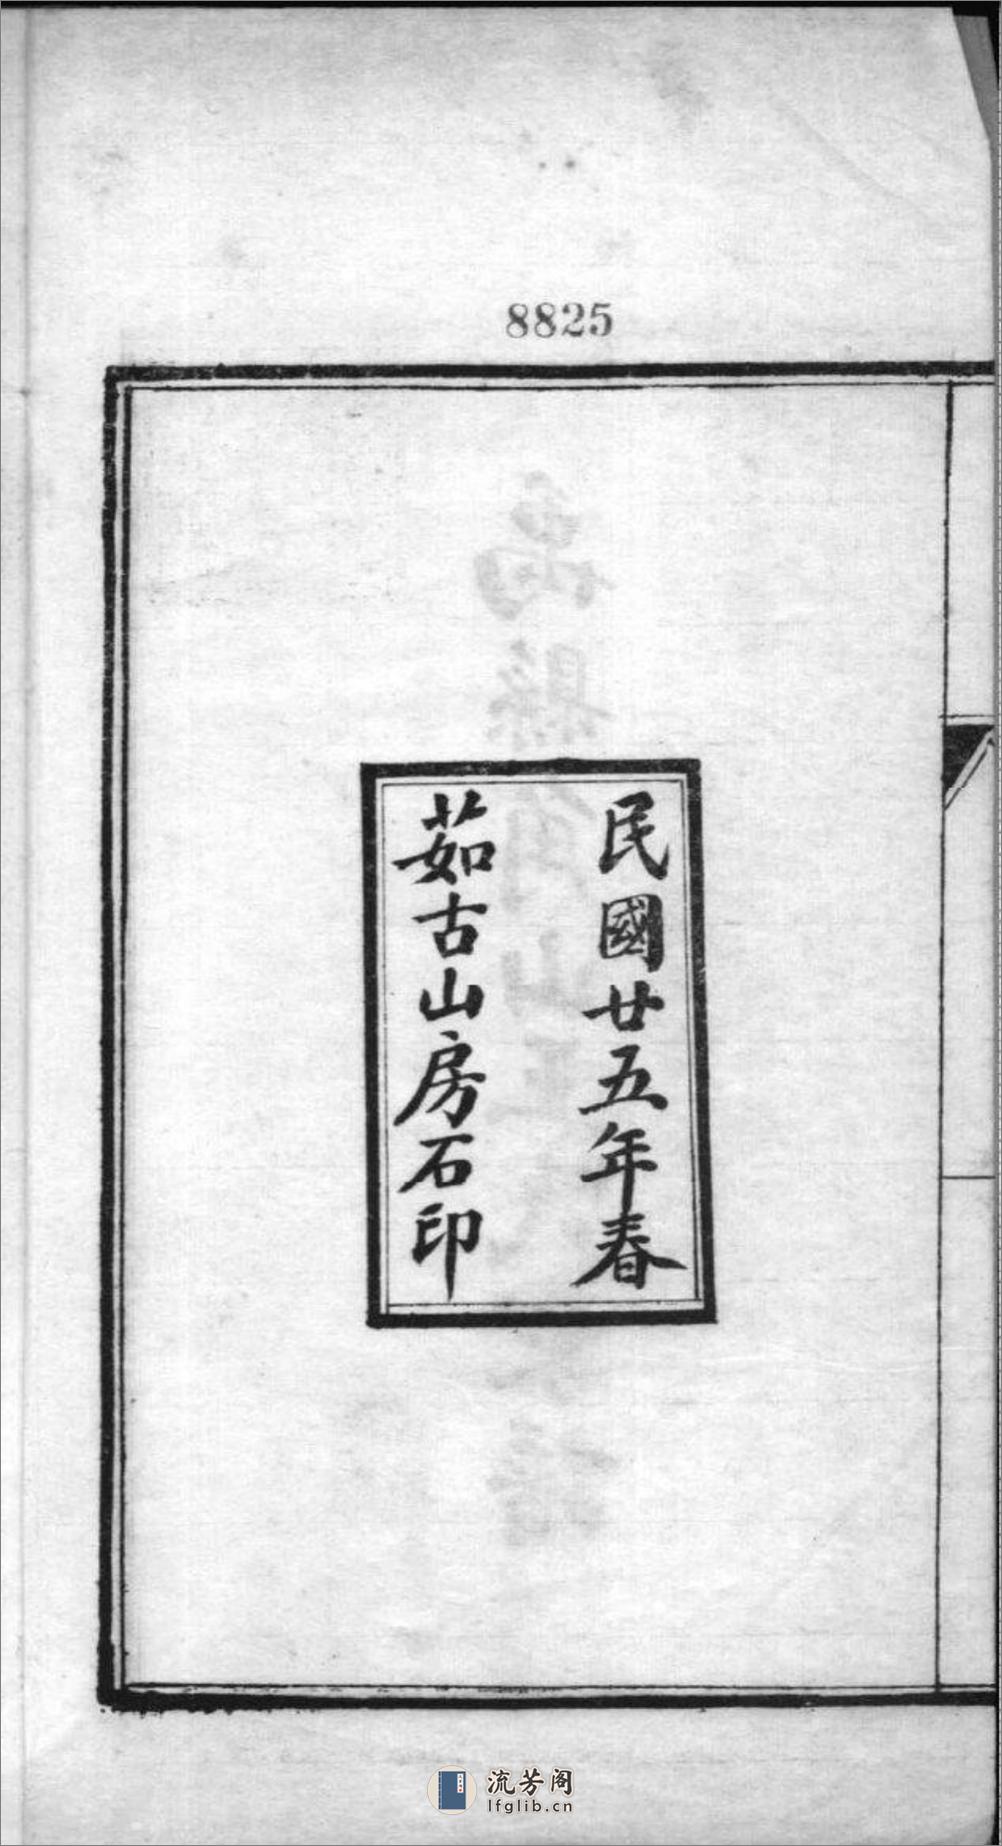 8825
民國廿五年春
茹古山房石印
流芳阁
lfglib.cn